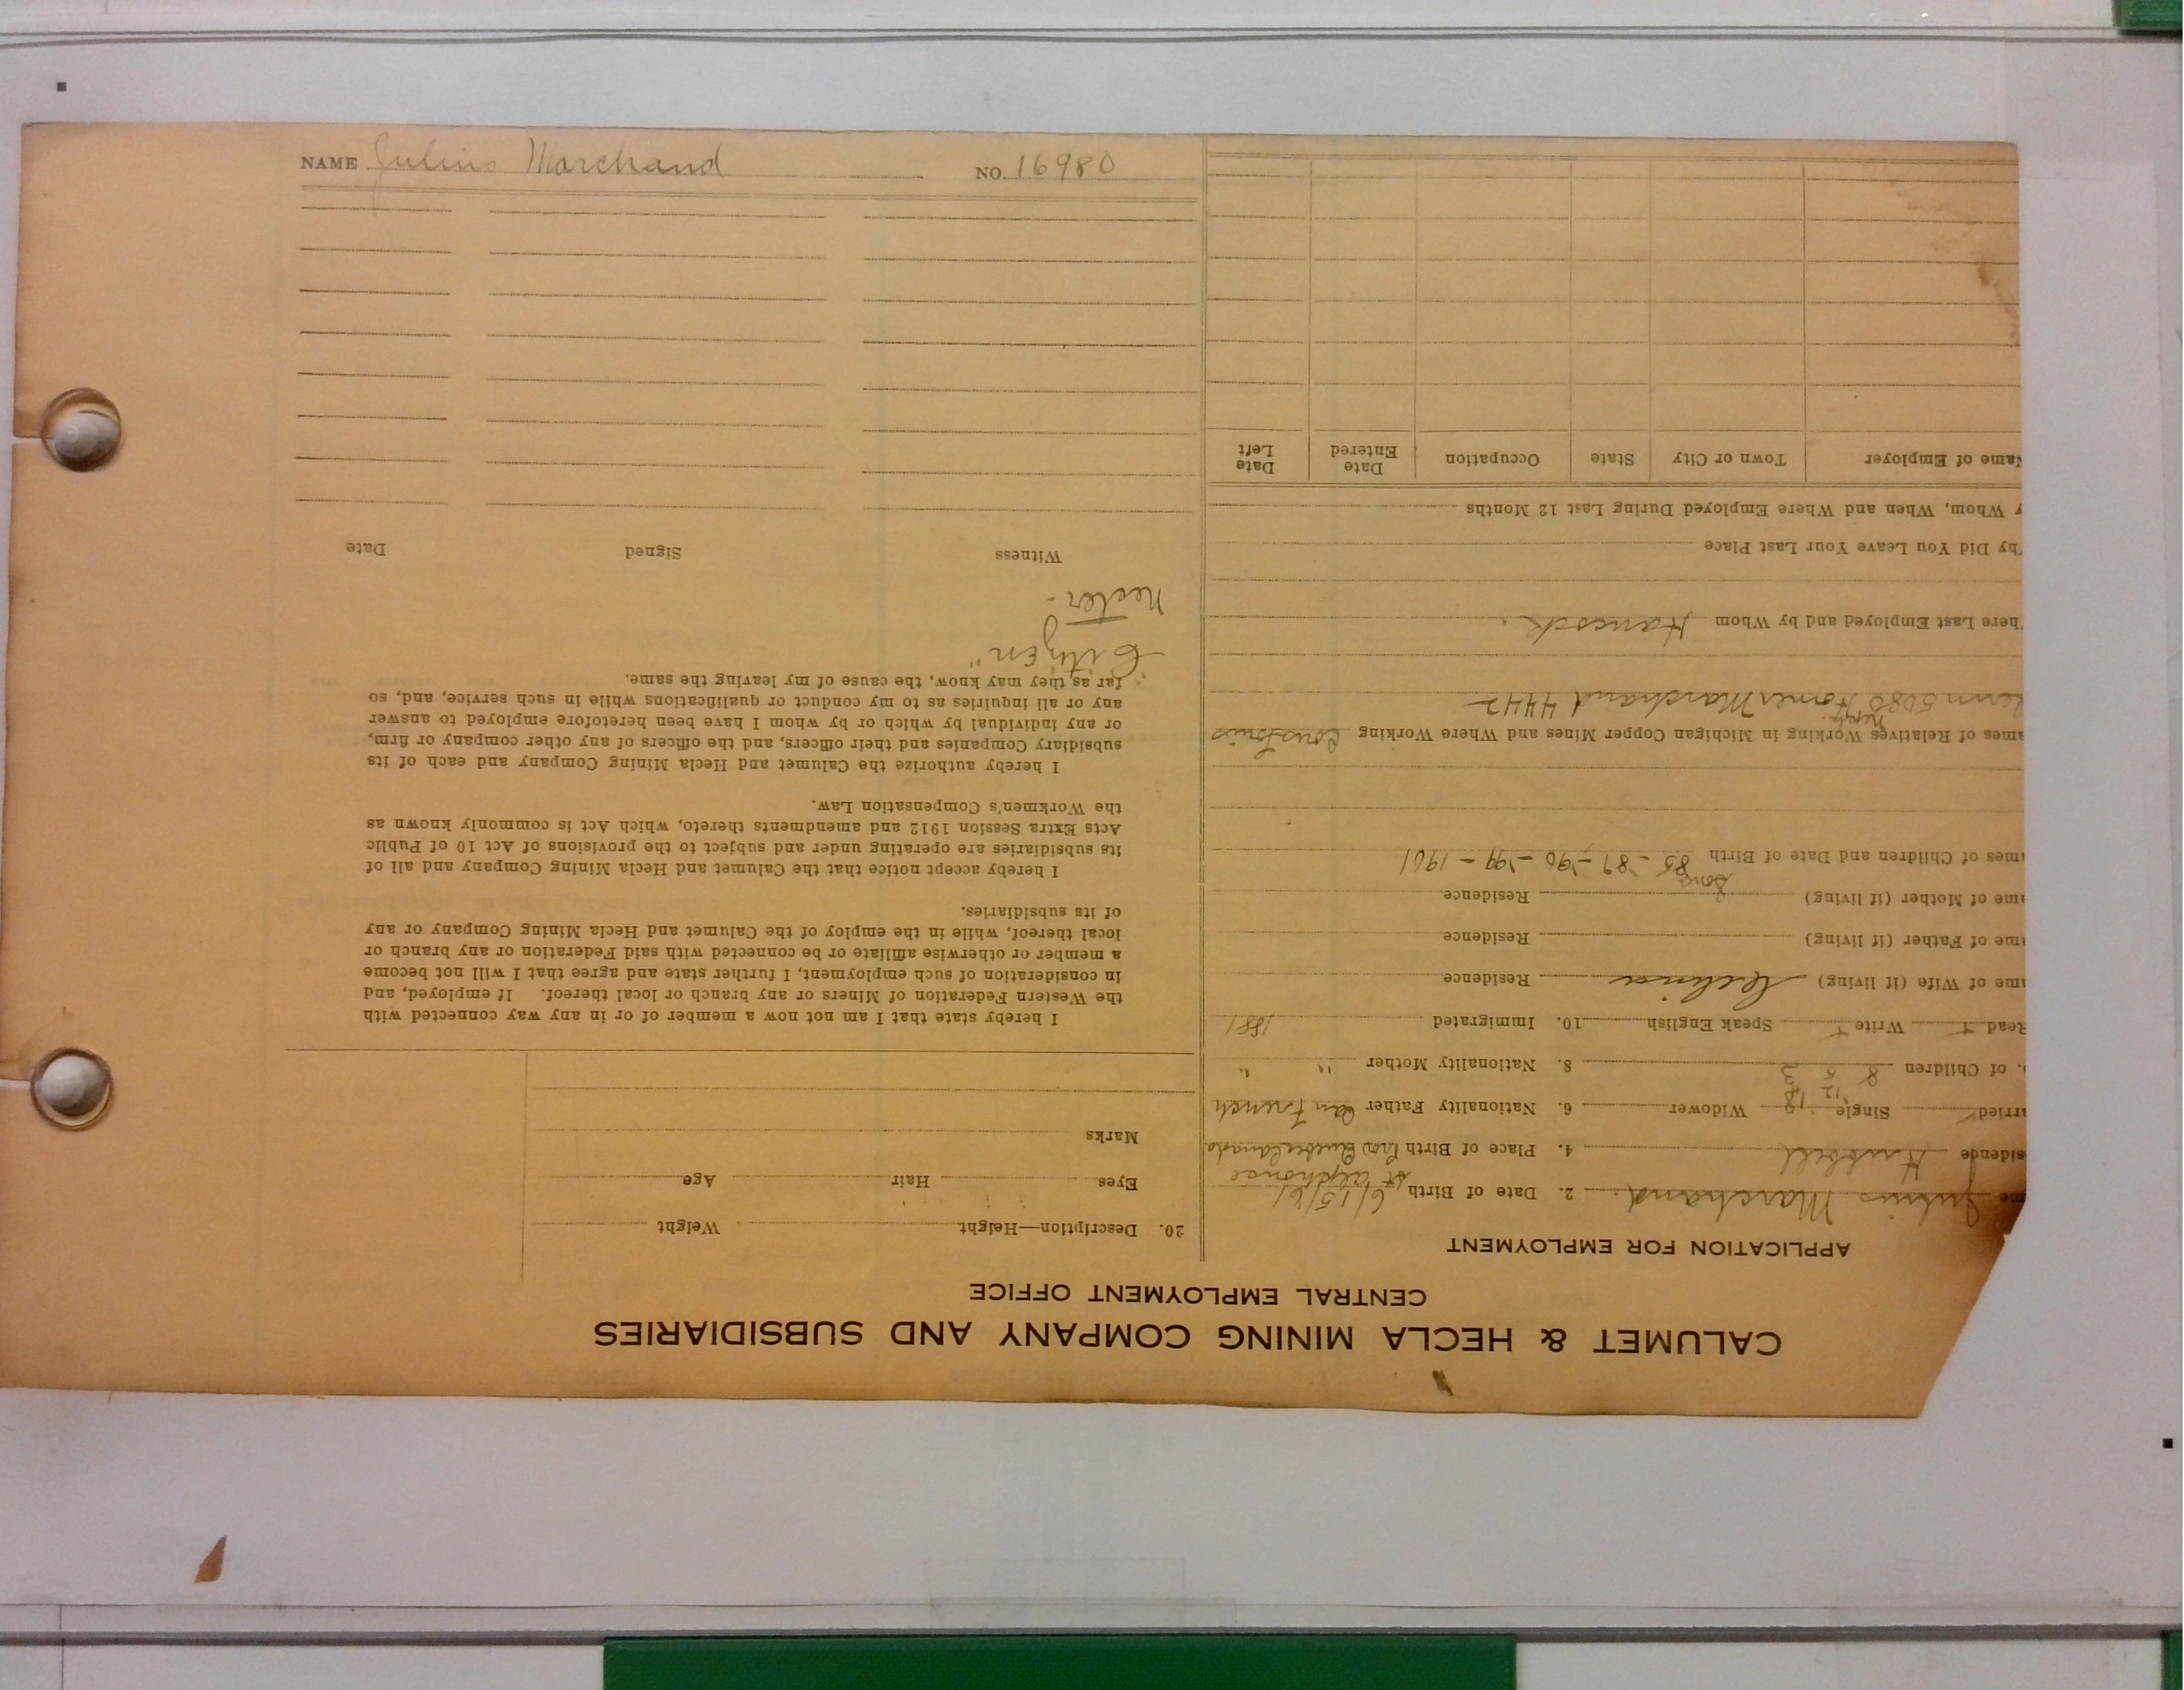 NAME Julius Marchand NO. 16980
CALUMET & HECLA MINING COMPANY AND SUBSIDIARIES
CENTRAL EMPLOYMENT OFFICE
APPLICATION FOR EMPLOYMENT
me Julius Marchand. 2. Date of Birth 6/15/61
St alphonse
sidence Hubbell 4. Place of Birth Pro Quebec Canada
arried Single Widower 6. Nationality Father Can French
12 18
. of Children 8 5 3 8. Nationality Mother " "
Read + Write + Speak English 10. Immigrated 1881
ame of Wife (if living) Residence
ame of Father (if living) Residence
ame of Mother (if living) Residence
Sons
ames of Children and Date of Birth 85 - 87 - 90 - 99 - 1901
ames of Relatives Working in Michigan Copper Mines and Where Working Sons Louis
neph.
5080 Homer Marchand 4442
here Last Employed and by Whom Hancock.
hy Did You Leave Your Last Place
y Whom, When and Where Employed During Last 12 Months
Name of Employer Town or City State Occupation Date Entered Date Left
20. Description—Height Weight
Eyes Hair Age
Marks
I hereby state that I am not now a member of or in any way connected with
the Western Federation of Miners or any branch or local thereof. If employed, and
in consideration of such employment, I further state and agree that I will not become
a member or otherwise affiliate or be connected with said Federation or any branch or
local thereof, while in the employ of the Calumet and Hecla Mining Company or any
of its subsidiaries.
I hereby accept notice that the Calumet and Hecla Mining Company and all of
its subsidiaries are operating under and subject to the provisions of Act 10 of Public
Acts Extra Session 1912 and amendments thereto, which Act is commonly known as
the Workmen's Compensation Law.
I hereby authorize the Calumet and Hecla Mining Company and each of its
subsidiary Companies and their officers, and the officers of any other company or firm,
or any individual by which or by whom I have been heretofore employed to answer
any or all inquiries as to my conduct or qualifications while in such service, and, so
far as they may know, the cause of my leaving the same.
"Citizen"
Nester-
Witness Signed Date